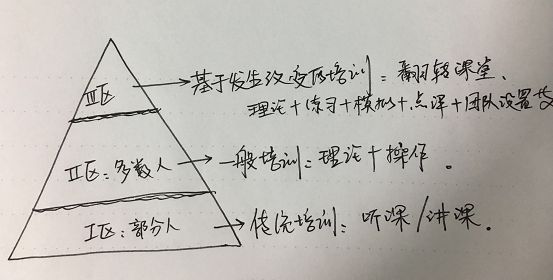 III区 → 基于发生改变的培训:翻转课堂、
理论+练习+模拟+点评+团队设置
II区:多数人 → 一般培训:理论+操作。
I区:部分人 → 传统培训:听课/讲课。